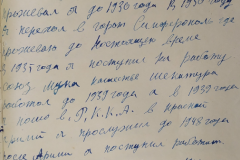 проживал я до 1930 года В 1930 году
я переехал в город Симферополь где
проживаю до настоящего время
в 1935 году я поступил на работу
союз мука
работал до 1939 года а в 1939 году
пошел в Р.К.К.А. в Красной
армии я прослужил до 1945 года
после Армии я поступил работать